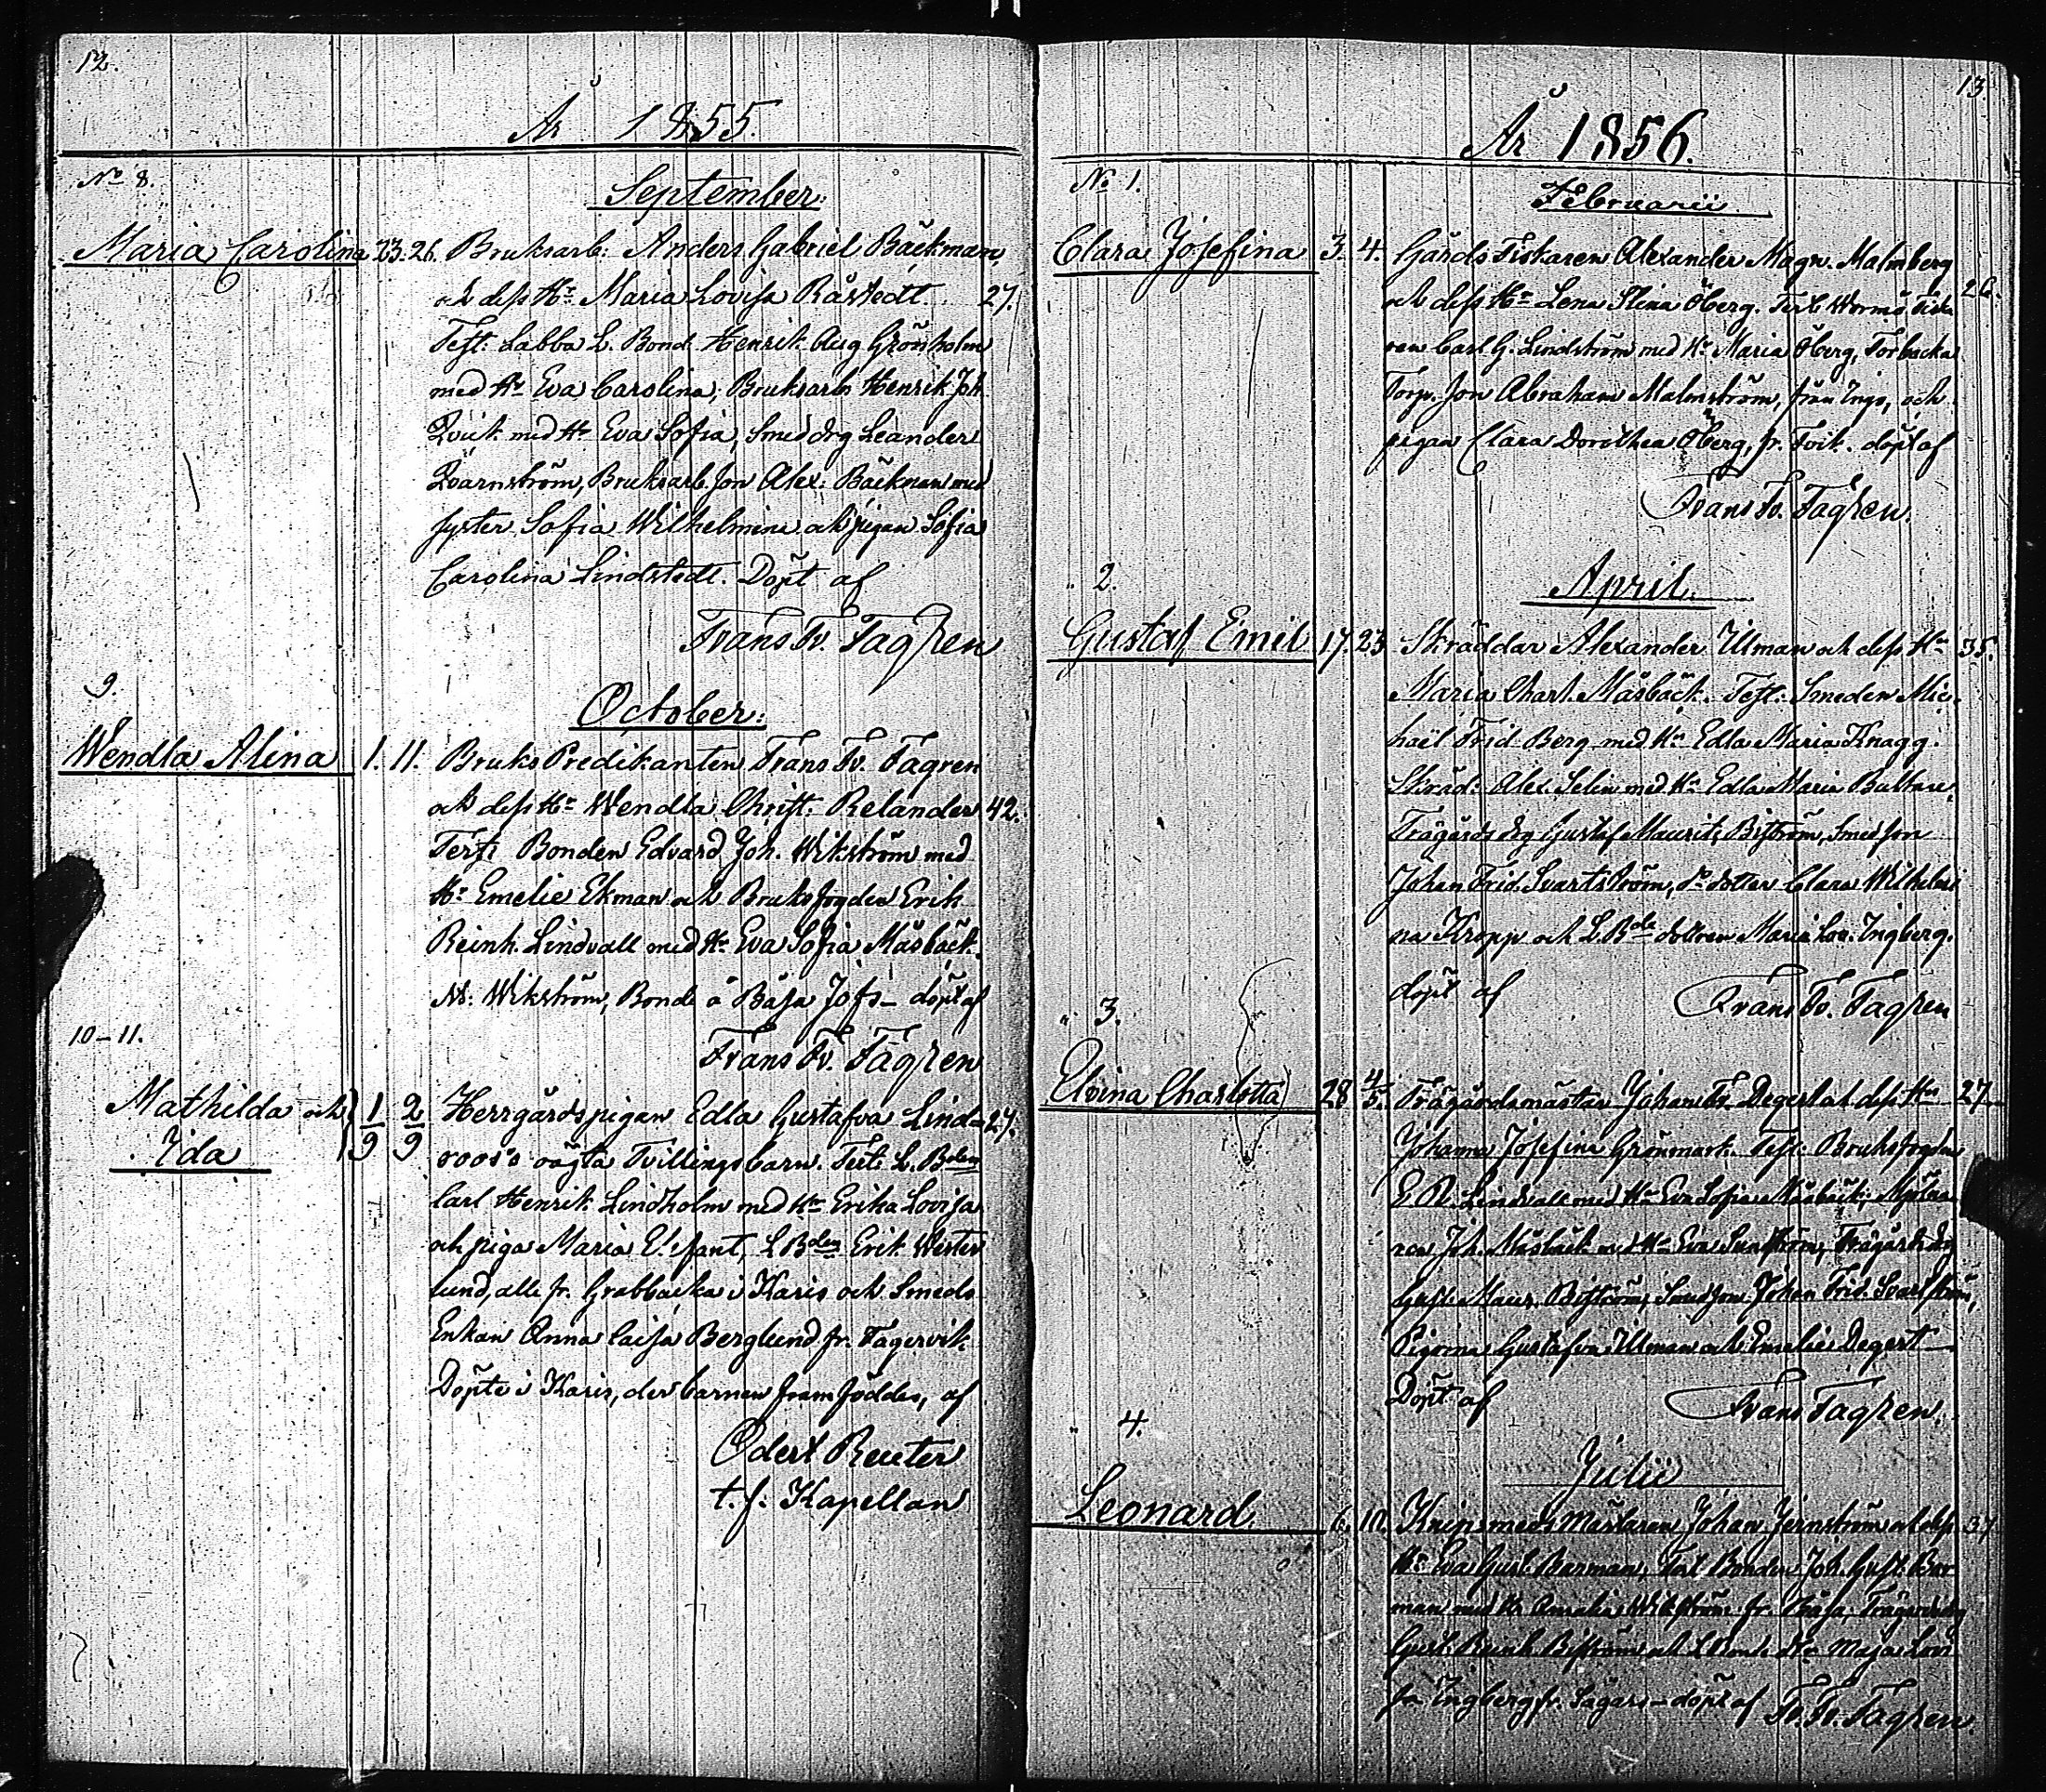 12.
År 1855.
No 8.
September.
Maria Carolina 23. 26. Bruksarb: Anders Gabriel Bäckman,
och dess Hu Maria Lovisa Råstedt. 27.
Test: Labba L. Bond. Henrik Aug Grönholm
med Hu Eva Carolina, Bruksarb Henrik Joh
Qvick med Hu Eva Sofia, Smeddrg Leander
Qvarnström, Bruksarb. Son Alex: Bäckman med
syster Sofia Wilhelmina och pigan Sofia
Carolina Lindstedt. Döpt af
Frans Fr. Fagren
9.
October.
Wendla Alina 1. 11. Bruks Predikanten Frans Fr. Fagren
och dess Hu Wendla Christ: Relander 42.
Test: Bonden Edvard Joh. Wikström med
Hu Emelie Ekman och Bruksfogden Erik
Reinh. Lindvall med Hu Eva Sofia Måsbäck.
Wikström, Bonde å Båsa döpt af
Frans Fr. Fagren
10-11.
Mathilda och 1/9 2/9 Herrgårdspigan Edla Gustafva Lind= 27.
Ida
roos's oägta Tvillingsbarn. Test: L. Bden
Carl Henrik Lindholm med Hu Erika Lovisa
och piga Maria E. L Bden Erik Wester
lund, alla fr. Grabbacka i Karis och Smeds
Enkan Anna Caisa Berglund fr. Fagervik.
Döpte i Karis, der barnen framföddes, af
Odert Reuter
t. f. Kapellan
13.
År 1856.
No 1.
Februarii
Clara Josefina 3. 4. Gårds Fiskaren Alexander Magn. Malmberg
och dess Hu Lena Stina Öberg. Test: Wormö Fiska 26.
ren Carl G. Lindström med Hu Maria Öberg, Torbacka
Torp. Son Abraham Malmström, från Ingo, och
pigan Clara Dorothea Öberg, fr. Fvik. döpt af
Frans Fr. Fagren.
" 2.
April.
Gustaf Emil 17. 23 Skräddar Alexander Ulman och dess Hu 35.
Maria Charl. Måsbäck. Test: Smeden Mic
hael Frid. Berg med Hu Edla Maria Knagg.
Skräd: Alex. Selin med Hu Edla Maria
Trägårds drg Gustaf Maurits Biström, Smedson
Johan Frid. Svartström, do dotter Clara Wilhelmi
na Kropp och L. Bde dottren Maria Lov. Ingberg.
döpt af Frans Fr. Fagren
" 3.
Elvina Charlotta 28 4/5. Trägårdsmästar Johan Fr. Degert och dess Hu 27.
Johanna Josefina Grönmark. Test: Bruksfogden
E. R. Lindvall med Hu Eva Sofia Måsbäck, Mjölna
ren Joh. Måsbäck med Hu Eva Sundström, Trägårds drg
Gust. Maur. Biström, Smedson Johan Frid. Svartström,
Pigorna Gustafva Ulman och Emelie Degert
Döpt af Frans Fagren.
" 4.
Julii
Leonard. 6. 10. Knipsmeds Mästaren Johan Jernström och dess 37
Hu Eva Gust. Barman, Test Bonden Joh. Gust. Bar
man med Hu Amalia Wikström fr. Båsa, Trägårdsdrg
Gust. Biström och L Bond. Dr Maja Lovi
sa Ingberg fr. Sågars - döpt af Fr. Fr. Fagren